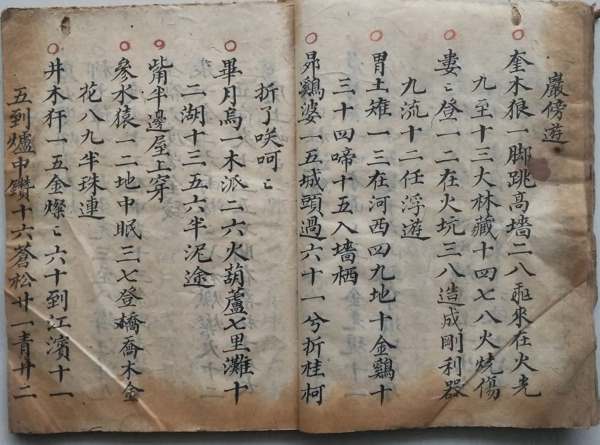 巖傍遊
奎木狼一脚跳高墻二八飛來在火光
九至十三大林藏十四七八火燒傷
婁ミ登一二在火坑三八造成剛利器
九流十二任浮遊
胃土雉一三在河西四九地十金鷄十
三十四啼十五入墻栖
昴鷄婆一五城頭過六十一兮折桂柯
折了咲呵ミ
畢月烏一木派二六火葫蘆七里灘十
二湖十三五六半泥途
觜半邊屋上穿
參水猿一二地中眠三七登橋喬木金
花八九半珠連
井木犴一五金燦ミ六十到江濱十一
五到爐中鑽十六蒼松廿一青廿二